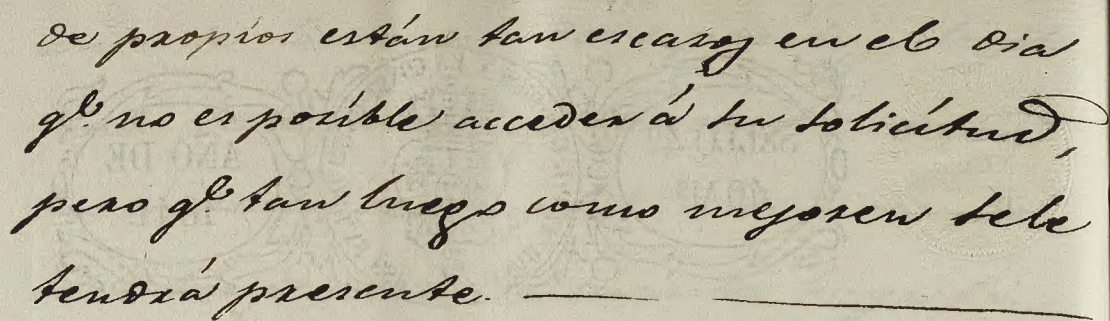 de propios están tan escasos en el dia
qe. no es posible acceder á su solicitud,
pero qe. tan luego como mejoren se le
tendrá presente.